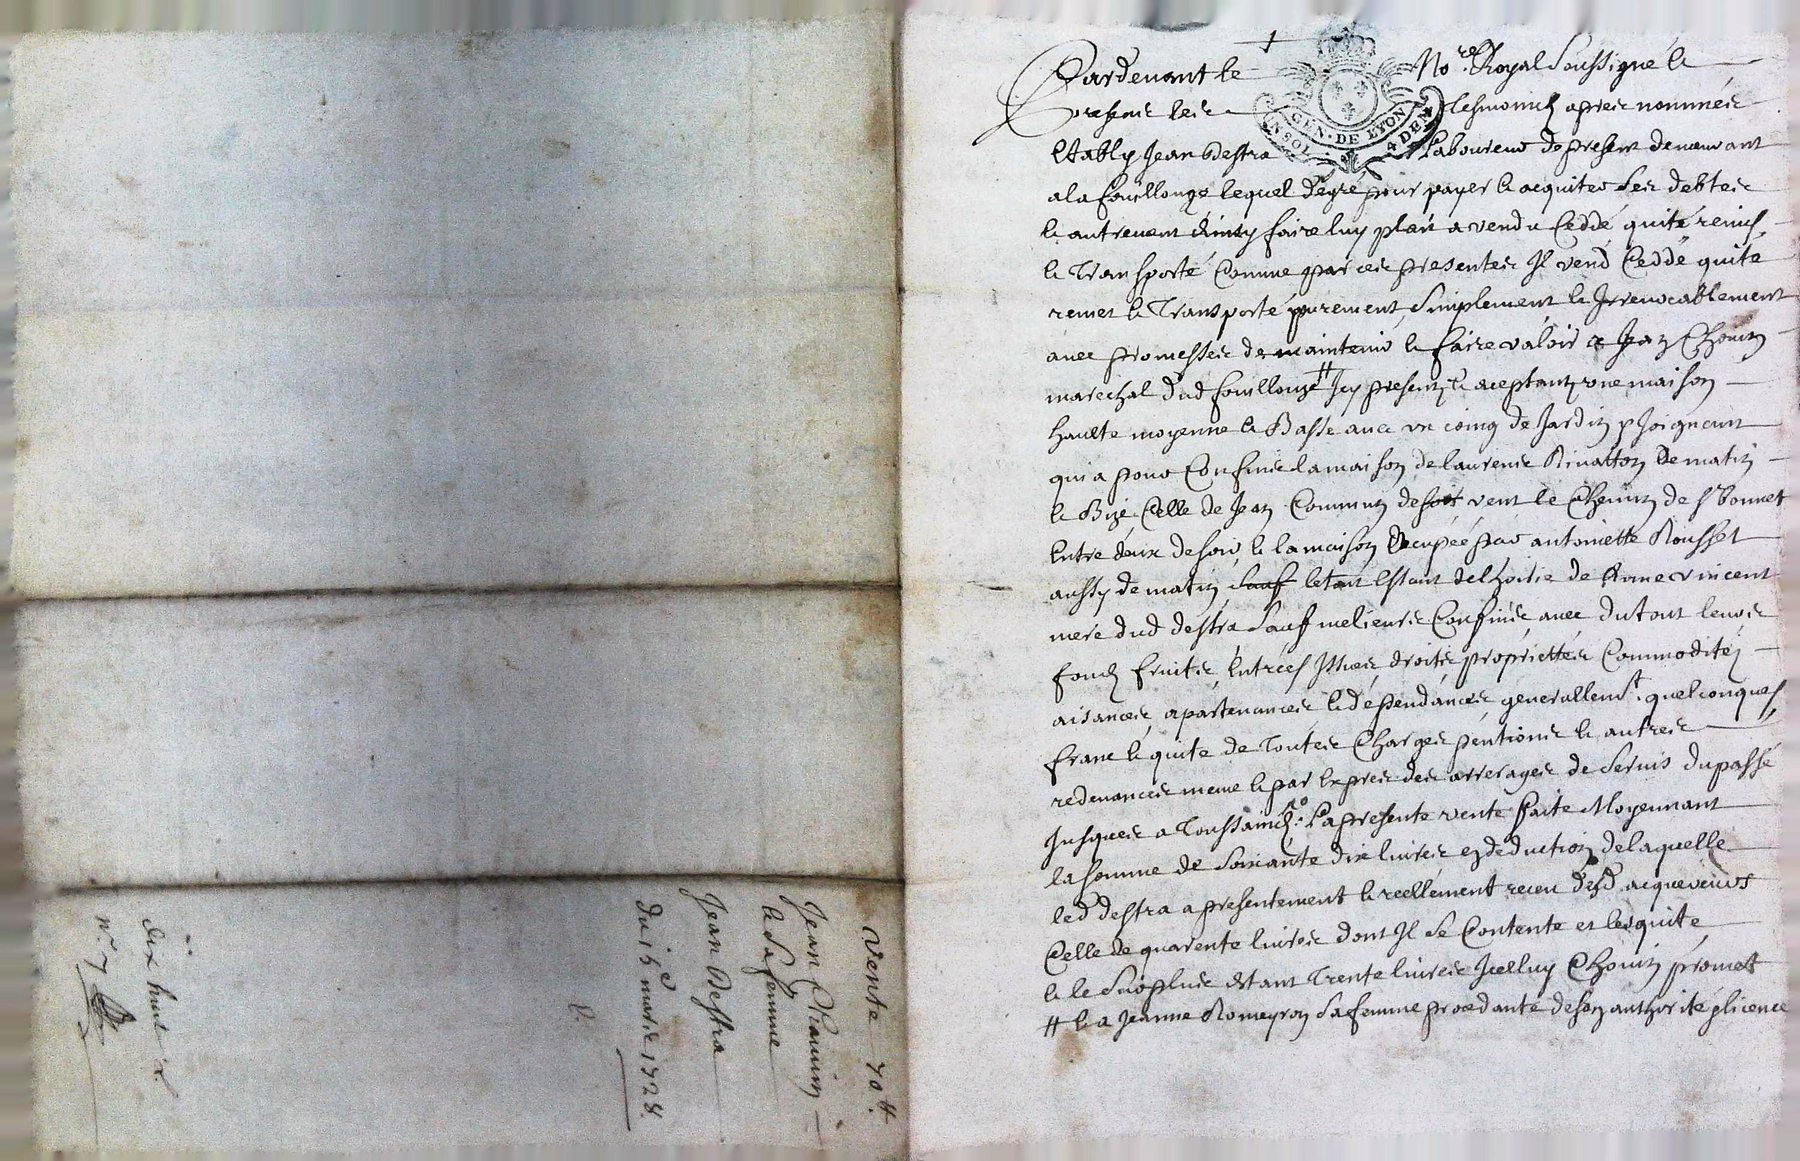 Vente 70 ₶.
Jean Chauuin
& Sa femme
Jean Destra
du 15e mars 1728.
&.
dix huit
N. 7
Pardeuant le No.re Royal Soussigné &
presens les tesmoincts apres nommés
Estably Jean Destra Laboureur de present demeurant
a la fouillouze lequel de gré pour payer & acquiter ses debtes
& autrement ainsy faire luy plait a vendu Ceddé quité remis
& Transporté Comme par ces presentes Il vend Ceddé quité
remet & Transporté purement, Simplement & Irreuocablement
auec promesses de maintenir & faire valoir a Jean Chouin
marechal dud fouillouze # Icy present & aceptant une maison
haulte moyenne & Basse auec un coing de Jardin y Joignant
qui a pour Confins la maison de laurens Rinatton de matin
& Bize Celle de Jean Commun de vent le Chemin de St Bonnet
Entre deux de soir & la maison occupée par antoinette Rousset
aussy de matin letout Estant delhoirie de vincent
mere dud destra Sauf melieurs Confins, auec du tout leurs
fonds fruits, Entrées Issues droits proprietés Commodités
aisances, apartenances & dependances generallemt. quelconques
franc & quite de Toutes Charges pentions & autres
redeuances meme & par Expres des arrerages de Seruis du passé
Jusques a Toussaincts: La presente vente faite Moyennant
la somme de Soixante dix liures en deduction de laquelle
led destra a presentement & reellement receu desd acquereurs
Celle de quarente liures dont Il se Contente et les quite
& le Surplus Estant Trente liures Icelluy Chouin promet
# & a Jeanne Romeyron sa femme procedante de son authorité & licence
GEN. DE LYON